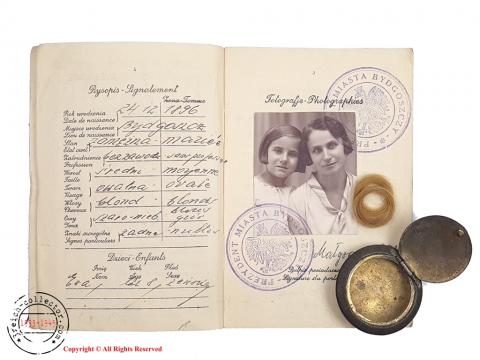 4
Rysopis - Signalement
Żona - Femme
Rok urodzenia 24.12.1896
Date de naissance
Miejsce urodzenia Bydgoszcz
Lieu de naissance
Stan zamężna - mariée
Etat civil
Zatrudnienie bez zawodu sans profession
Profession
Wzrost średni - moyenne
Taille
Twarz owalna - ovale
Visage
Włosy blond - blonds
Cheveux
Oczy
Yeux
Znaki szczególne żadne - nulles
Signes particuliers
Dzieci - Enfants
Imię Wiek Płeć
Nom Age Sexe
Eva, lat 8, żeńska
5
Fotografje - Photographies
MIASTA BYDGOSZCZY
PREZYDENT MIASTA BYDGOSZCZY
Podpis posiadacza
Signature du porteur
reich-collector.com
1933-1945
Copyright © All Rights Reserved